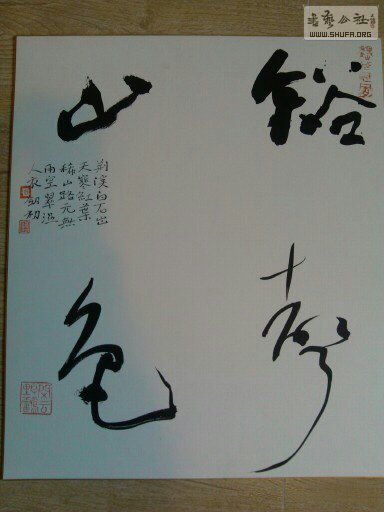 书艺公社
WWW.SHUFA.ORG
谿聲
山色
荆溪白石出
天寒紅葉
稀山路元無
雨空翠湿
人衣